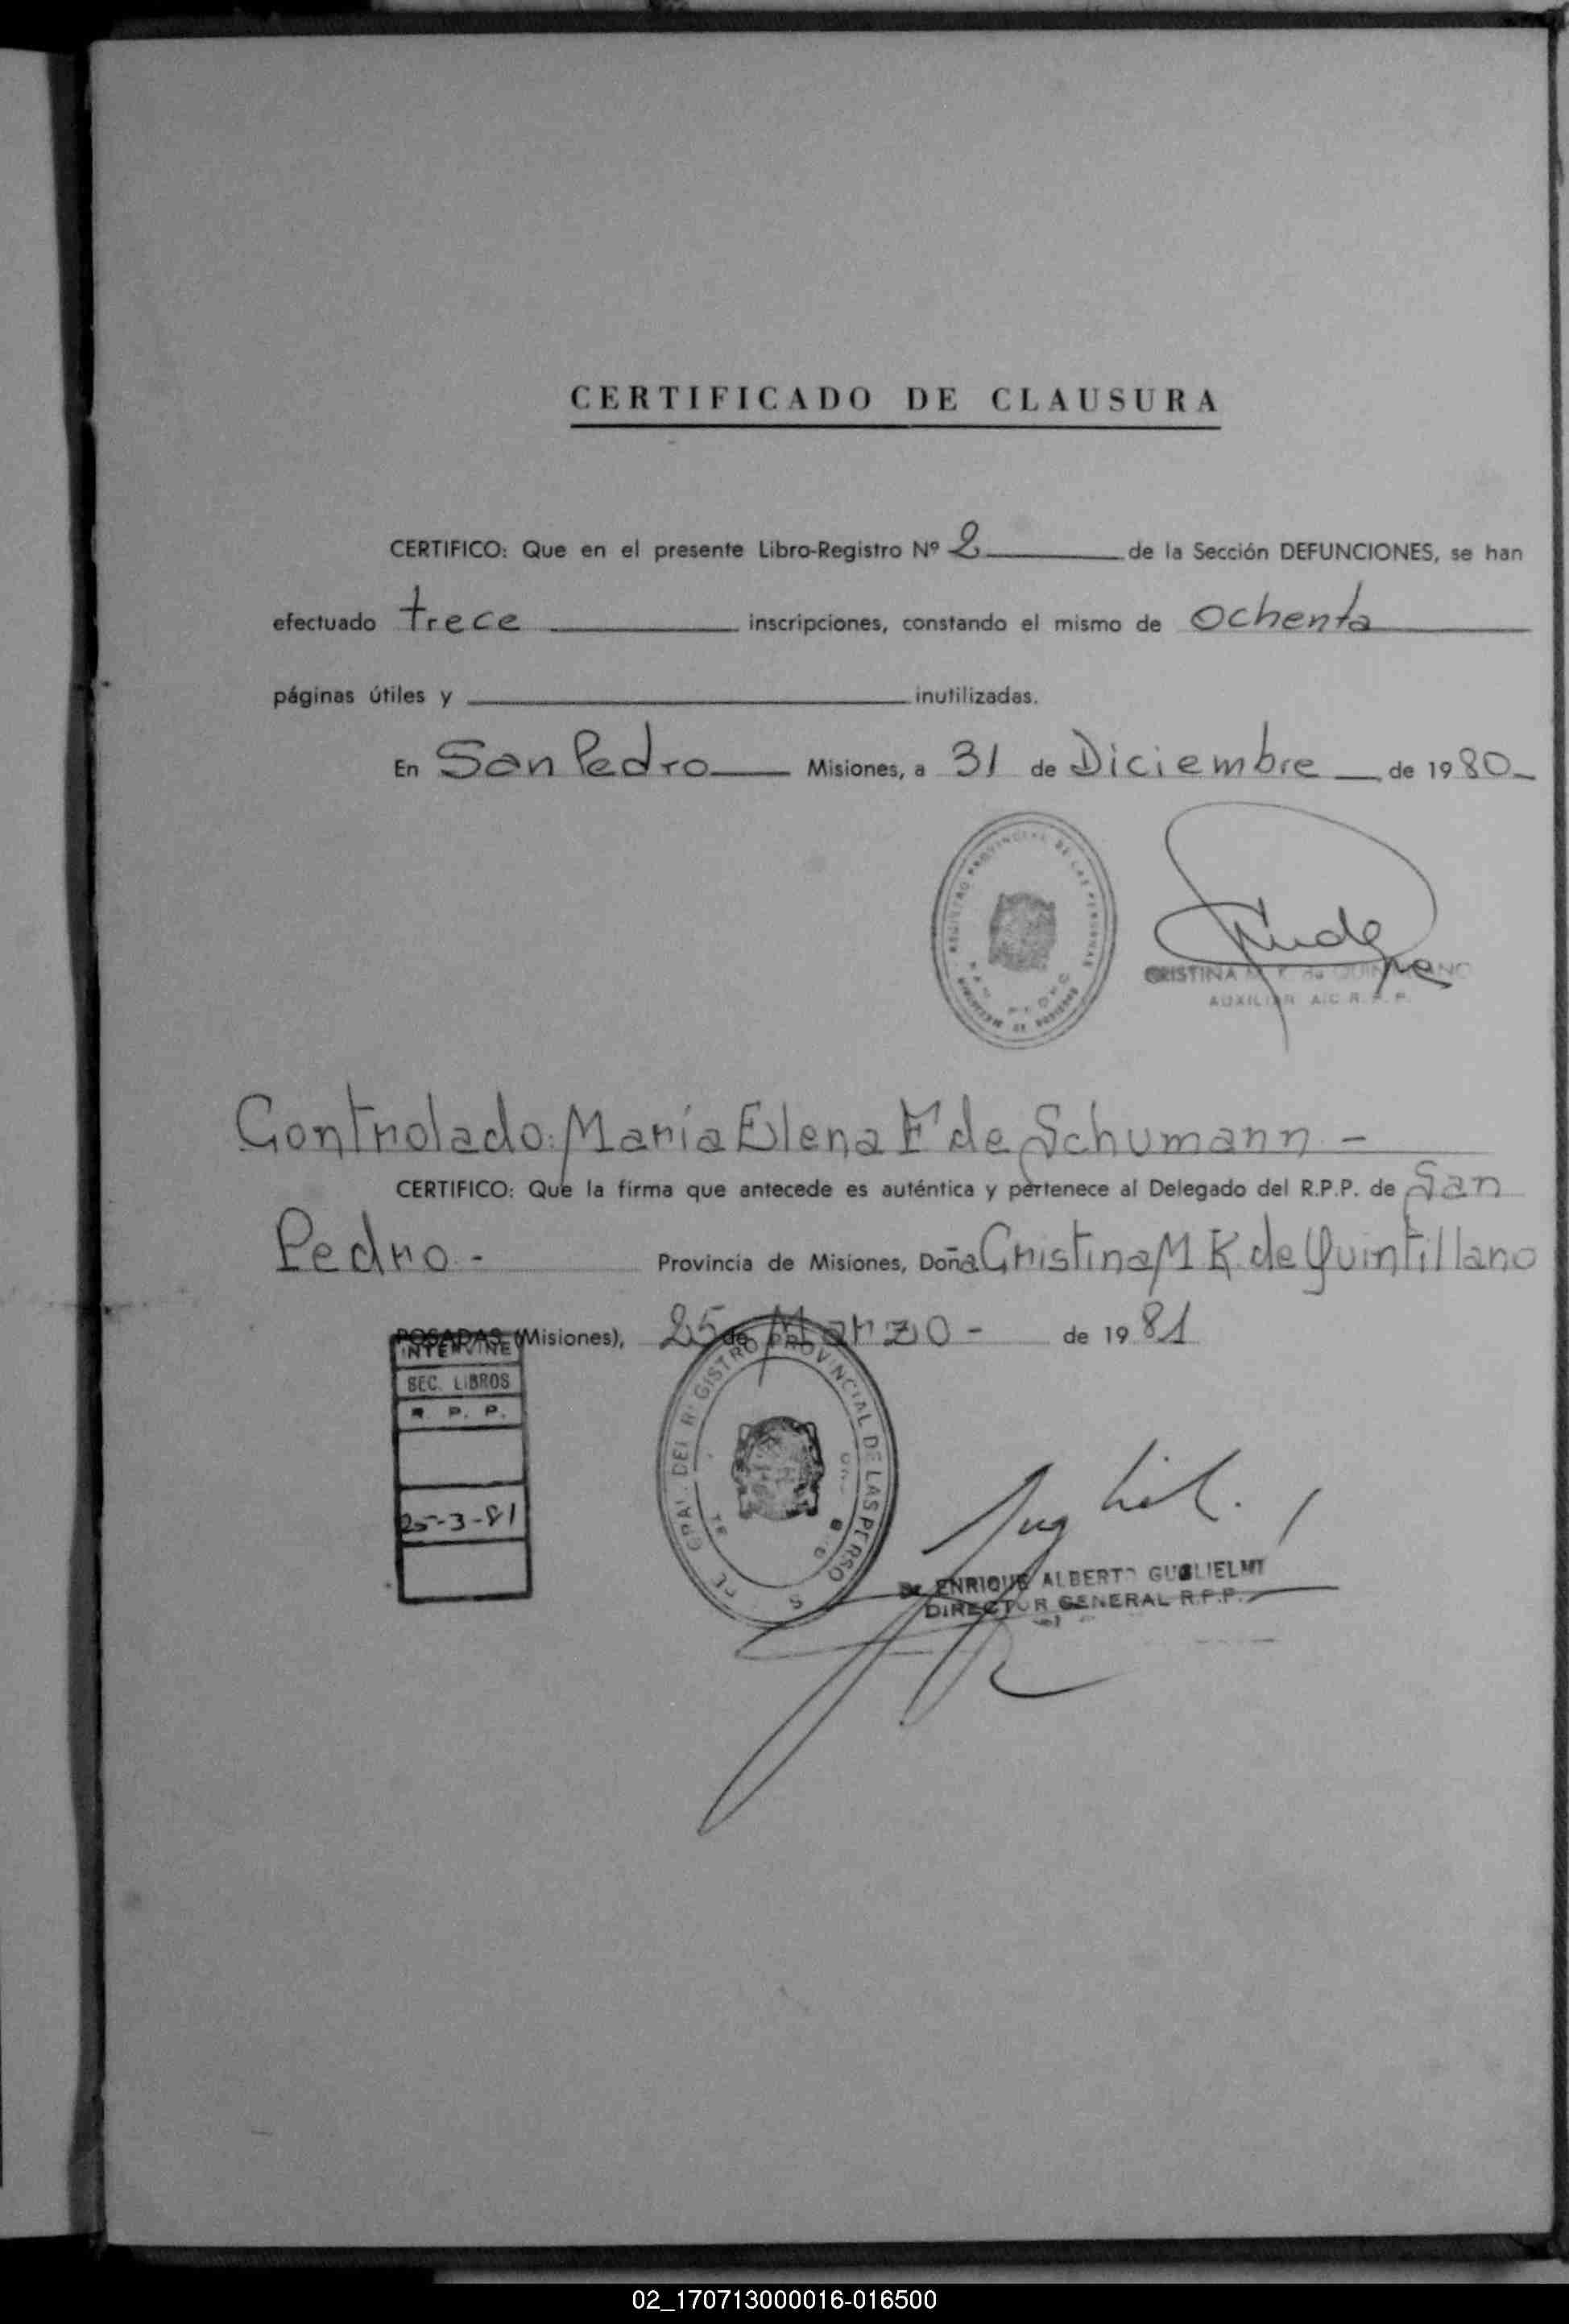 CERTIFICADO DE CLAUSURA
CERTIFICO: Que en el presente Libro-Registro Nº 2 de la Sección DEFUNCIONES, se han
efectuado trece inscripciones, constando el mismo de ochenta
páginas útiles y inutilizadas.
En San Pedro Misiones, a 31 de Diciembre de 1980
REGISTRO PROVINCIAL DE LAS PERSONAS
CRISTINA M. K. de QUINTILLANO
AUXILIAR A/C R. P. P.
Controlado: María Elena F de Schumann -
CERTIFICO: Que la firma que antecede es auténtica y pertenece al Delegado del R.P.P. de San
Pedro - Provincia de Misiones, Doña Cristina M K de Quintillano
POSADAS (Misiones), 25 de Marzo - de 1981
INTERVINE
SEC. LIBROS
R. P. P.
25-3-81
DEL REGISTRO PROVINCIAL DE LAS PERSO S
Dr. ENRIQUE ALBERTO GUGLIELMI
DIRECTOR GENERAL R.P.P.
02_170713000016-016500